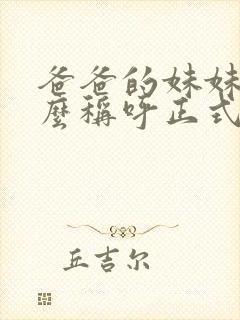 爸爸的妹妹
麼稱呼正式
丘吉尔